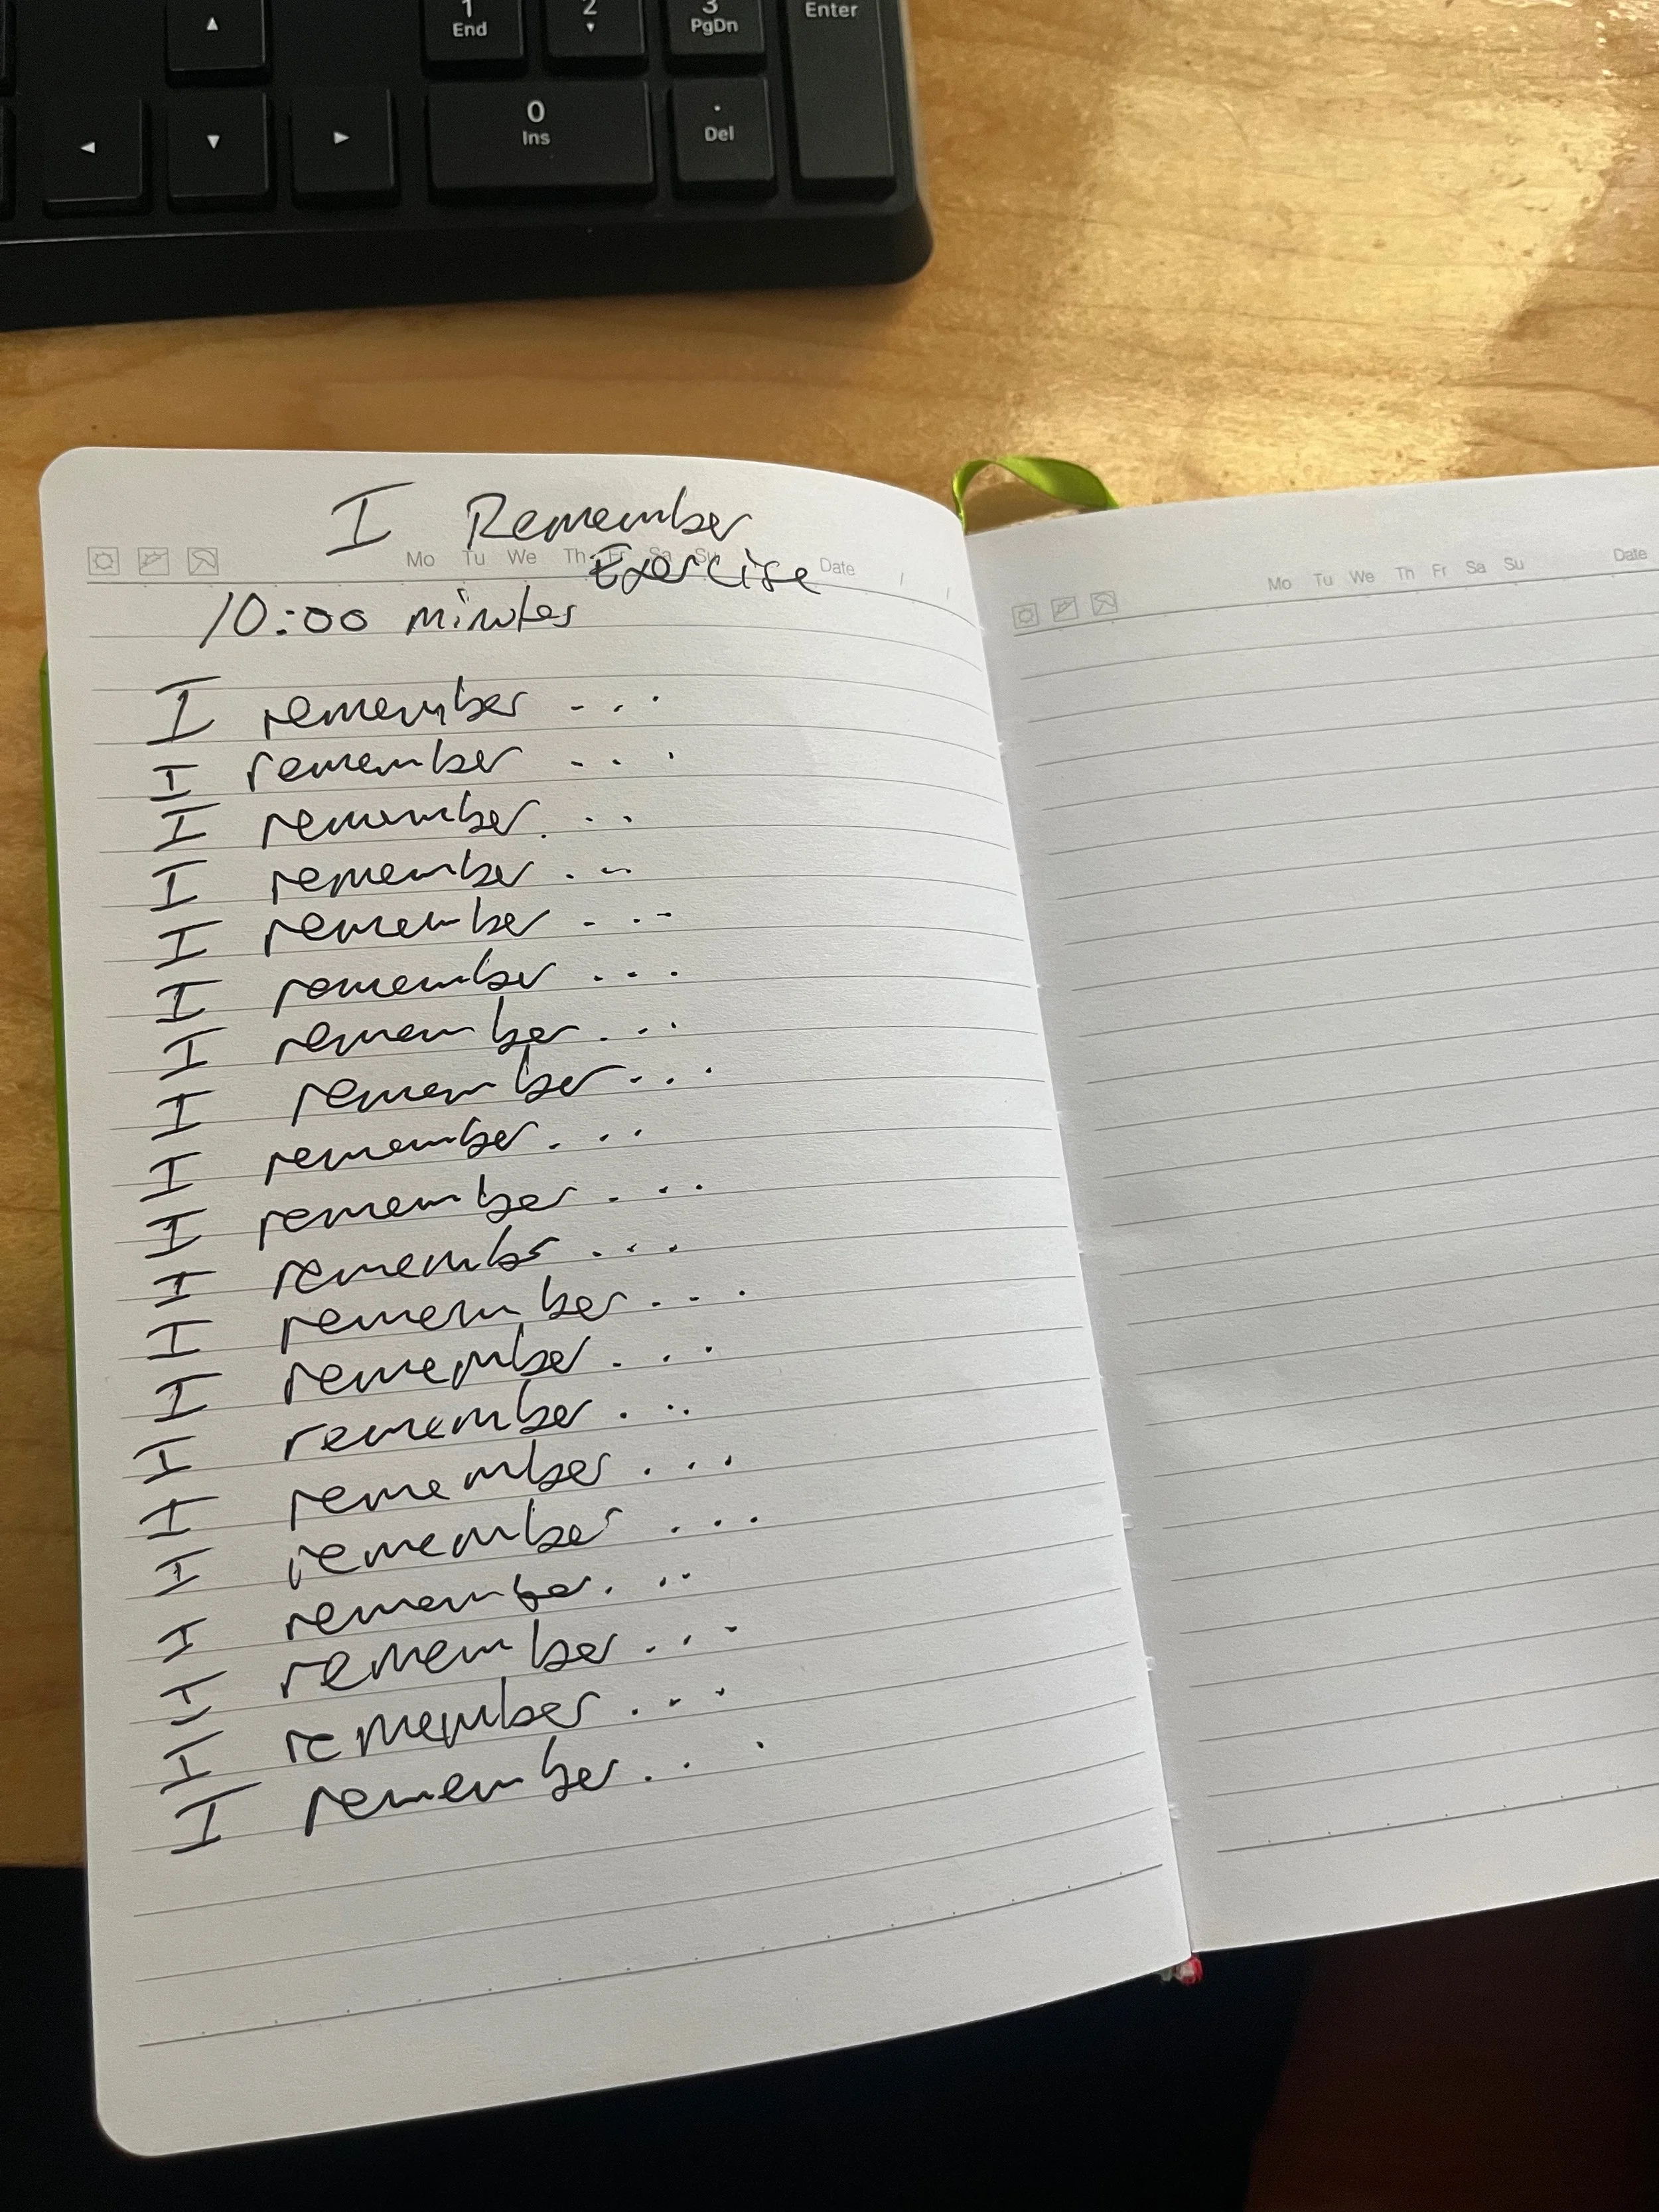 1 2 3 Enter
End PgDn
0 .
Ins Del
I Remember
Mo Tu We Th Fr Sa Su Date
Exercise
10:00 minutes
I remember ...
I remember ...
I remember ...
I remember ...
I remember ...
I remember ...
I remember ...
I remember ...
I remember ...
I remember ...
I remember ...
I remember ...
I remember ...
I remember ...
I remember ...
I remember ...
I remember ...
I remember ...
I remember ...
I remember ...
Mo Tu We Th Fr Sa Su Date